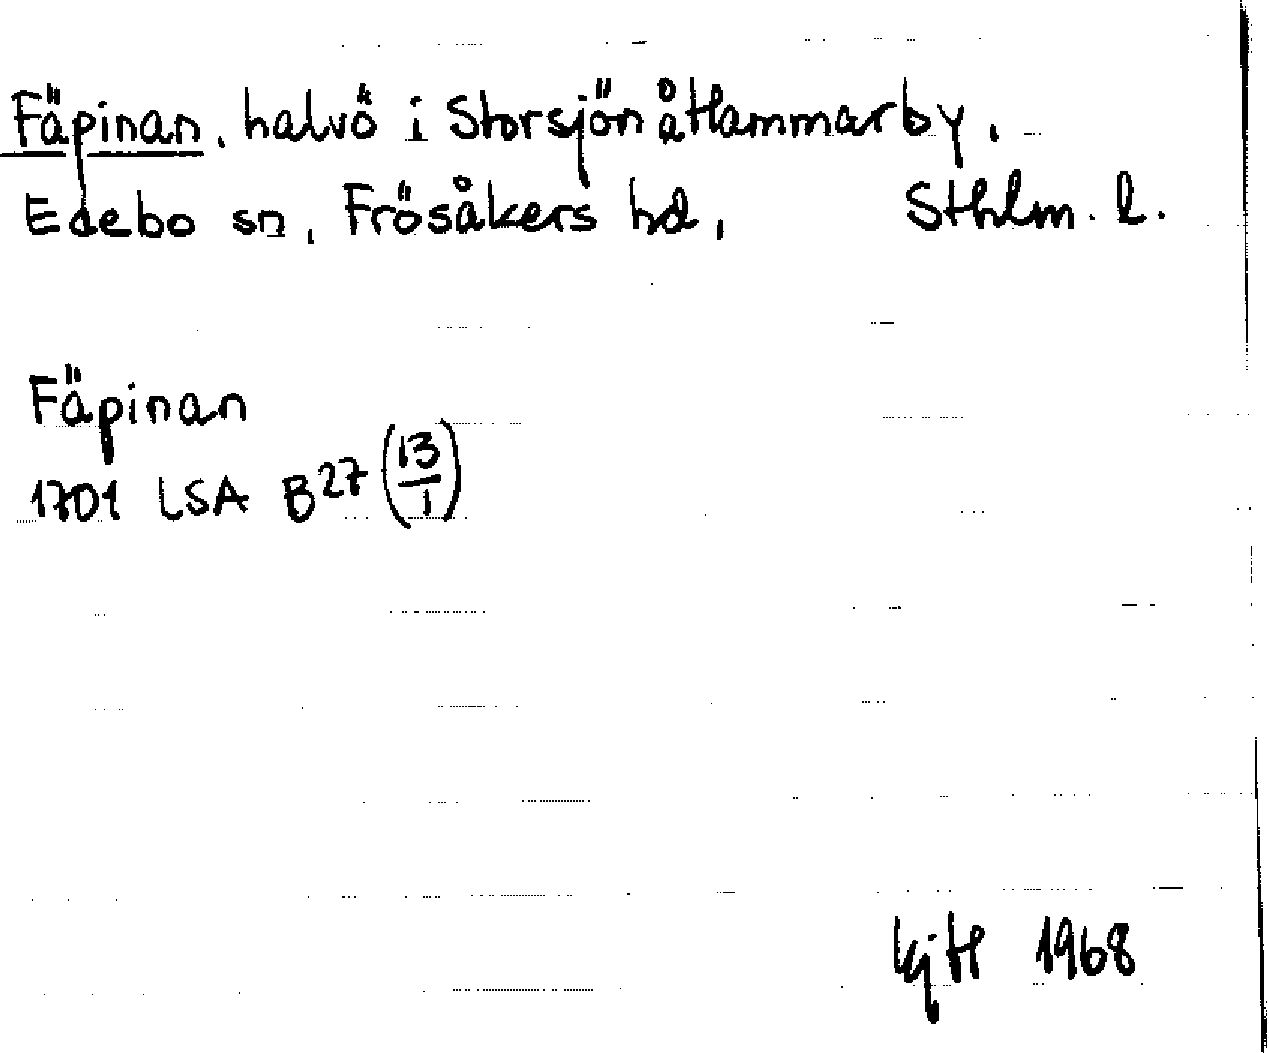 Fäpinan, halvö i Storsjön å Hammarby,
Edebo sn, Frösåkers hd, Sthlm. l.
Fäpinan
1701 LSA B27 (13/1)
KjH 1968